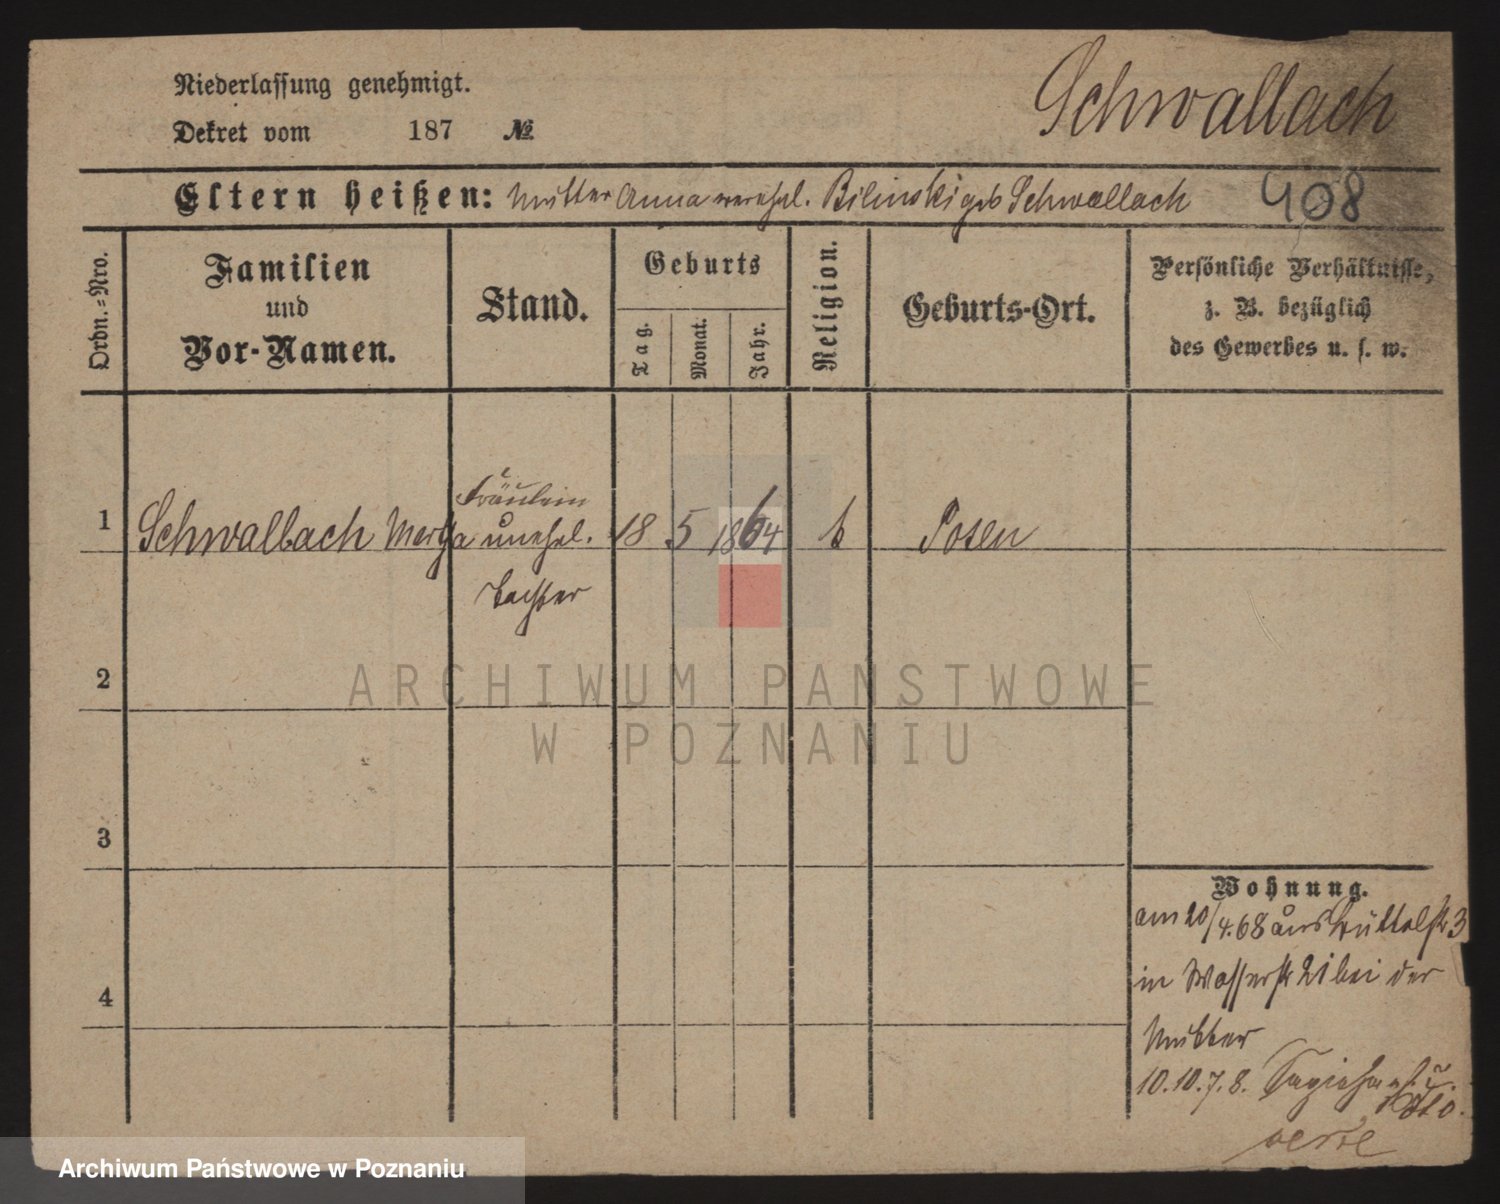 Niederlassung genehmigt.
Dekret vom 187 №
Schwallach
Eltern heißen: Mutter Anna verehel. Bilinski geb Schwallach
408
Ordn.-Nro.
Familien
und
Vor-Namen.
Stand.
Geburts
Tag.
Monat.
Jahr.
Religion.
Geburts-Ort.
Persönliche Verhältnisse,
z. B. bezüglich
des Gewerbes u. s. w.
Fräulein
1 Schwalbach Martha unehel. 18 5 1864 k Posen
Tochter
2
3
4
Wohnung.
am 20/4.68 aus Büttelstr 3
in Wasserstr 21 bei der
Mutter
10.10.7.8.
ARCHIWUM PAŃSTWOWE
W POZNANIU
Archiwum Państwowe w Poznaniu